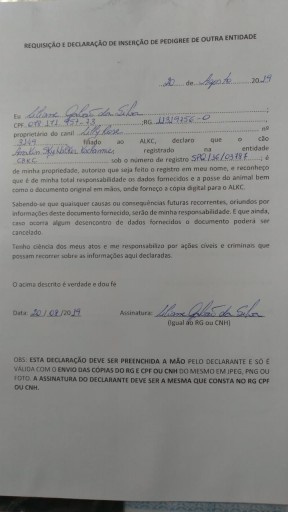 REQUISIÇÃO E DECLARAÇÃO DE INSERÇÃO DE PEDIGREE DE OUTRA ENTIDADE
20 de Agosto 2019
Eu Liliane Galvão da Silva ;
CPF ;RG ;
proprietária do canil Lilly Rose nº
3249 filiado ao ALKC, declaro que o cão
registrado na entidade
CBKC sob o número de registro ; é
de minha propriedade, autorizo que seja feito o registro em meu nome, e reconheço
que é de minha total responsabilidade os dados fornecidos e a posse do animal bem
como o documento original em mãos, onde forneço a cópia digital para o ALKC.
Sabendo-se que quaisquer causas ou consequências futuras recorrentes, oriundos por
informações deste documento fornecido, serão de minha responsabilidade. E que ainda,
caso ocorra algum desencontro de dados fornecidos o documento poderá ser
cancelado.
Tenho ciência dos meus atos e me responsabilizo por ações cíveis e criminais que
possam recorrer sobre as informações aqui declaradas.
O acima descrito é verdade e dou fé
Data: 20/08/2019 Assinatura: Liliane Galvão da Silva
(Igual do RG ou CNH)
OBS: ESTA DECLARAÇÃO DEVE SER PREENCHIDA A MÃO PELO DECLARANTE E SÓ É
VÁLIDA COM O ENVIO DAS CÓPIAS DO RG E CPF OU CNH DO MESMO EM JPEG, PNG OU
FOTO. A ASSINATURA DO DECLARANTE DEVE SER A MESMA QUE CONSTA NO RG CPF
OU CNH.